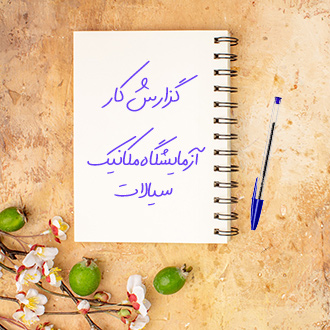 گزارش کار
آزمایشگاه مکانیک
سیالات